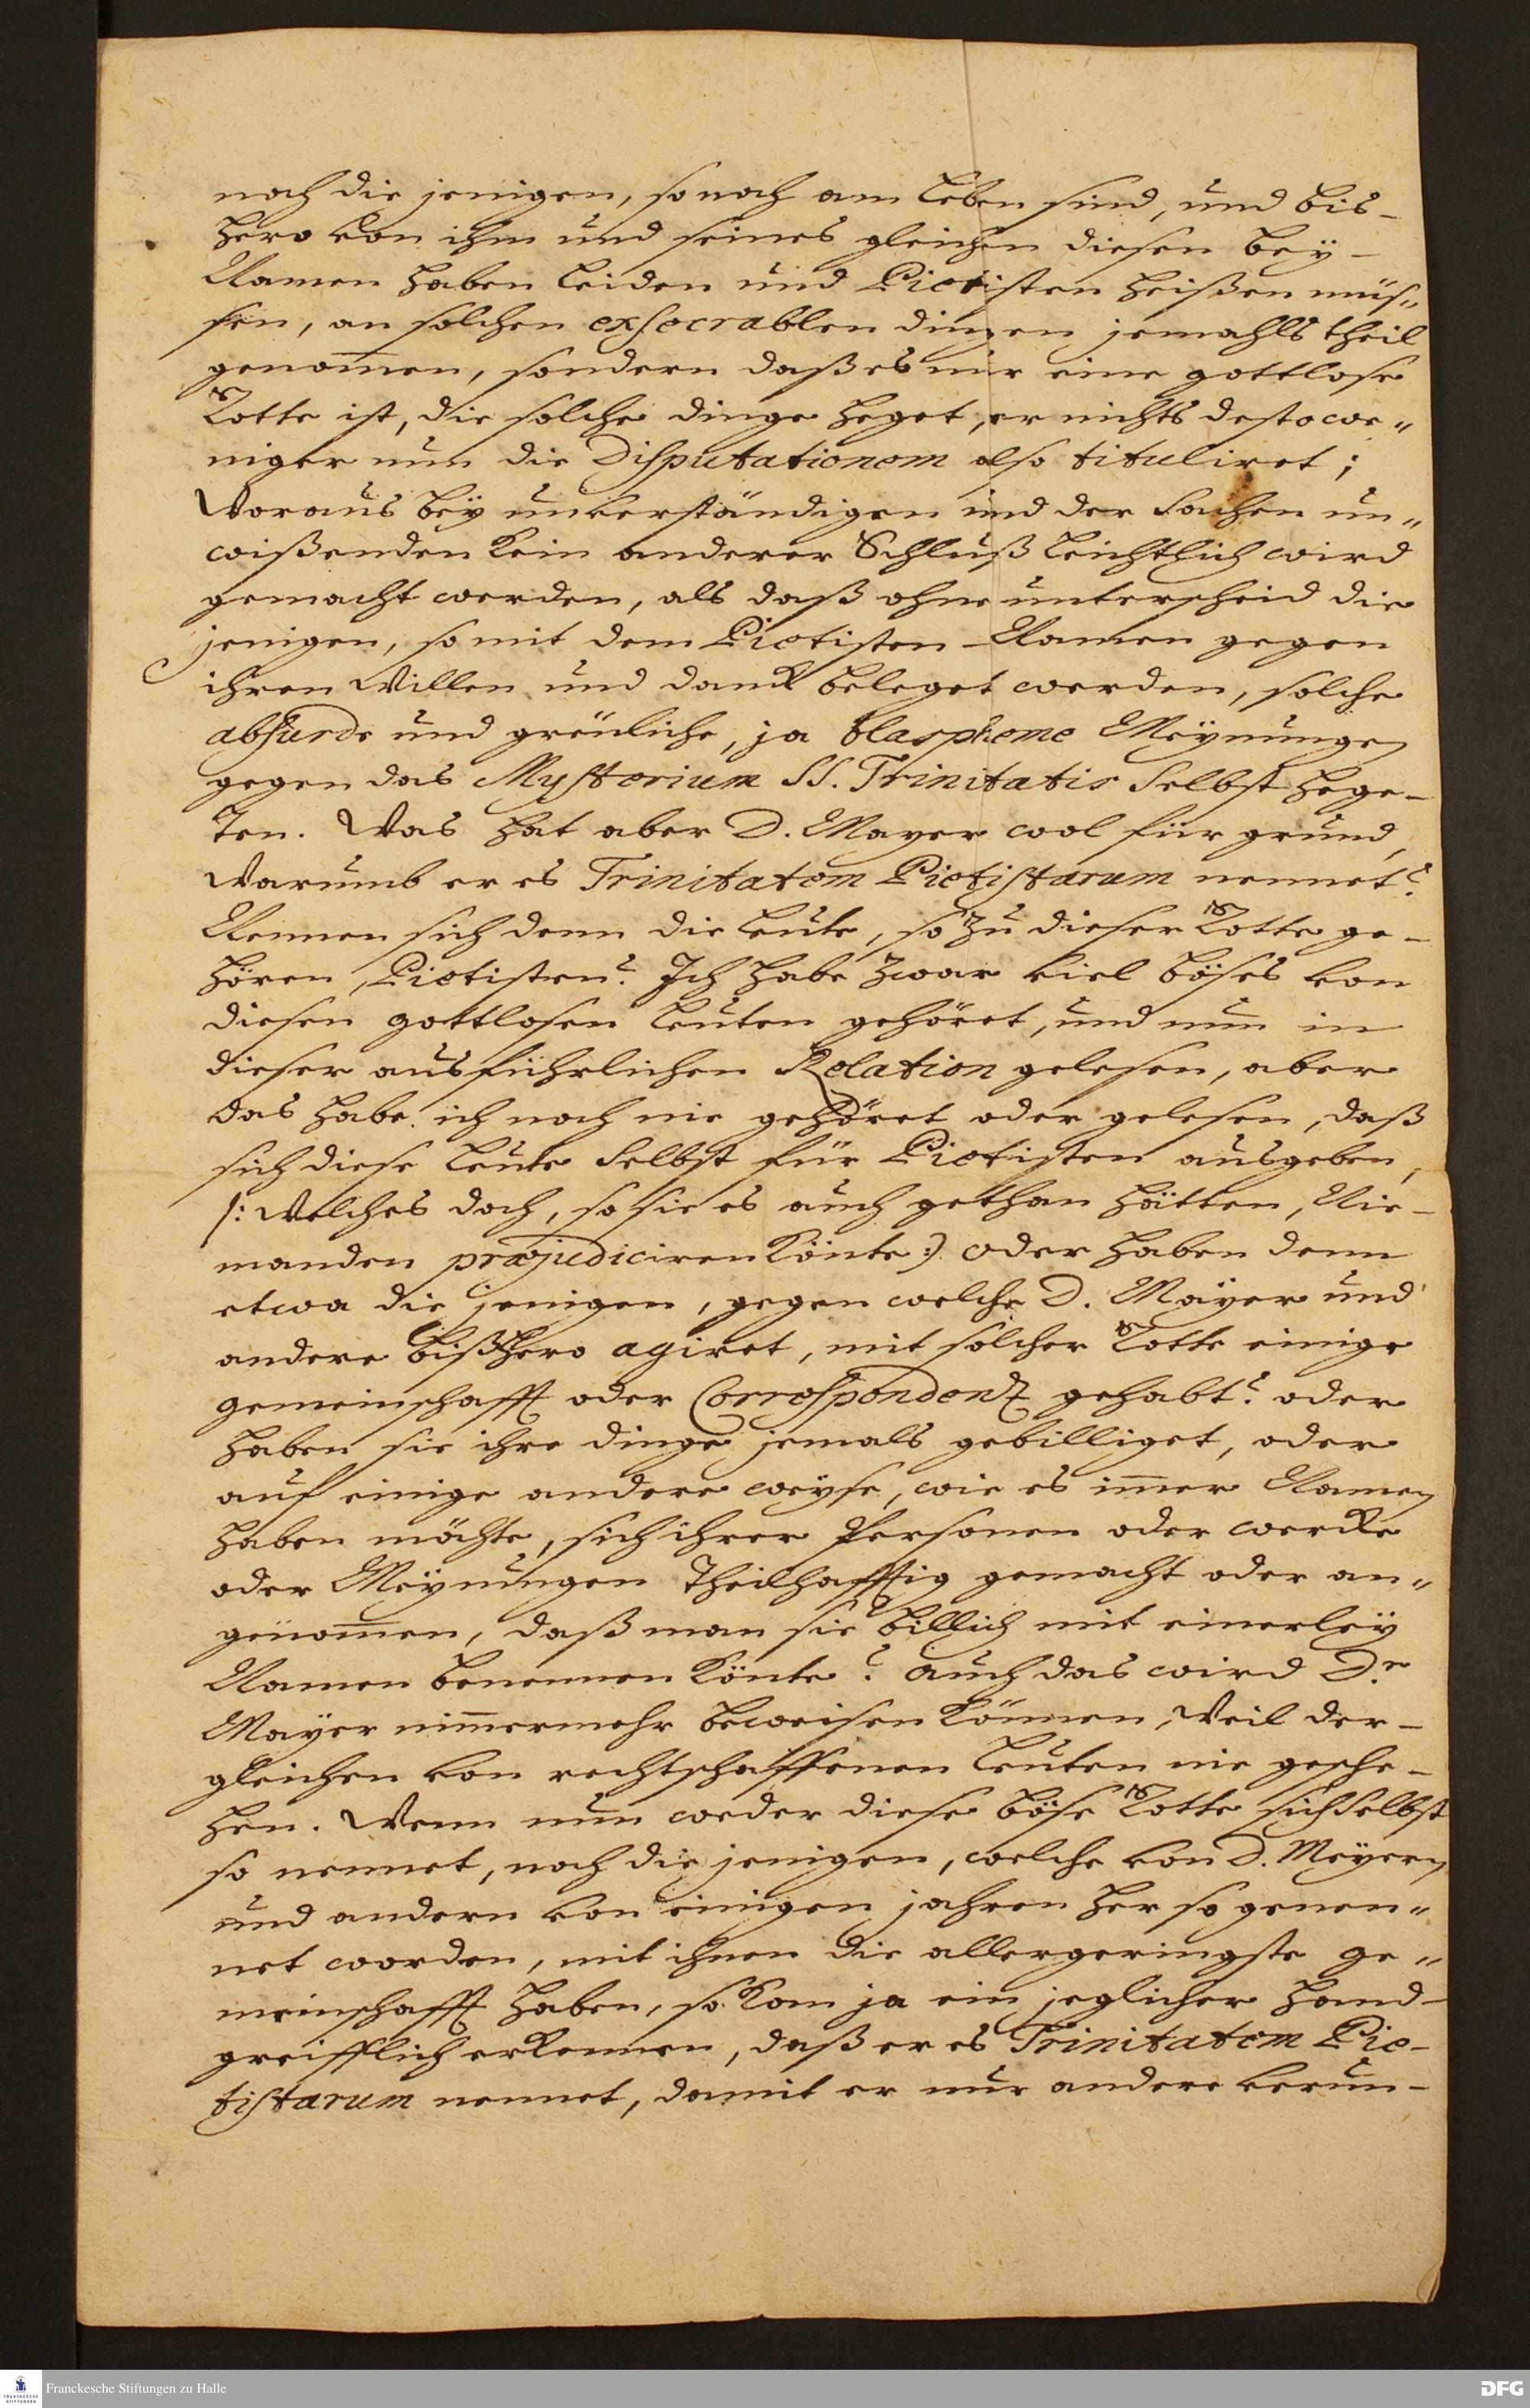 noch die jenigen, so noch am Leben sind, und bis-
hero von ihm und seines gleichen diesen bey-
Namen haben leiden und Pietisten heißen müs„
sen, an solchen exsecrablen dingen jemahls theil
genom̄en, sondern daß es nur eine gottlose
Rotte ist, die solche dinge heget, er nichts destowe„
niger nun die Disputationem also tituliret;
Woraus bey unverständigen und der Sachen un„
wißenden kein anderer Schluß leichtlich wird
gemacht werden, als daß ohne unterscheid die
jenigen, so mit dem Pietisten-Namen gegen
ihren Willen und danck beleget werden, solche
absurde und greuliche, ja blaspheme Meynungen
gegen das Mysterium SS. Trinitatis Selbst hege-
ten. Was hat aber D. Mayer wol für grund,
Warumb er es Trinitatem Pietistarum nennet?
Nennen sich denn die Leute, so zu dieser Rotte ge-
hören, Pietisten? Ich habe zwar viel böses von
diesen gottlosen Leuten gehöret, und nun in
dieser ausführlichen Relation gelesen, aber
das habe ich noch nie gehöret oder gelesen, daß
sich diese Leute Selbst für Pietisten ausgeben,
/: Welches doch, so sie es auch gethan hätten, Nie-
manden præjudiciren könte :) oder haben denn
etwa die jenigen, gegen welche D. Mayer und
andere bißhero agiret, mit solcher Rotte einige
gemeinschafft oder Correspondentz gehabt? oder
haben sie ihre dinge jemals gebilliget, oder
auf einige andere weyse, wie es im̄er Namen
haben möchte, sich ihrer Personen oder wercke
oder Meynungen theilhafftig gemacht oder an„
genom̄en, daß man sie billich mit einerley
Namen benennen könte? auch das wird Dr.
Mayer nim̄ermehr beweisen können, Weil der-
gleichen von rechtschaffenen Leuten nie gesche-
hen. Wenn nun weder diese böse Rotte sich selbst
so nennet, noch die jenigen, welche von D. Meyern
und andern von einigen jahren her so genen„
net worden, mit ihnen die allergeringste ge„
meinschafft haben, so kan ja ein jeglicher hand-
greifflich erkennen, daß er es Trinitatem Pie-
tistarum nennet, damit er nur andere verun-
Franckesche Stiftungen zu Halle
FRANCKESCHE
STIFTUNGEN
DFG